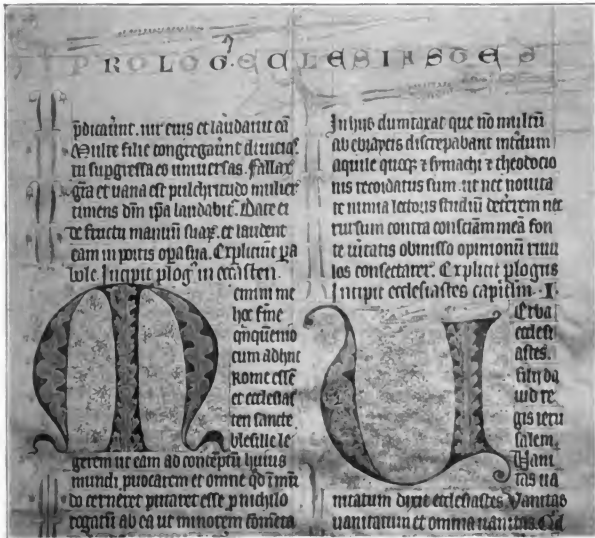 PROLOG. ECCLESIASTES
pdicauert. uir eius et laudauit eā
Multe filie congregauert diuicias
tu supgressa es uniuersas. fallax
gr̄a et uana est pulchritudo mulier
timens dn̄m ip̄a laudabit᷒. Date ei
de fructu manuū suaꝝ. et laudent
eam in portis opa sua. Explicit pa
bole. Incipit plog᷒ in eccāsten.
Memini me
hoc fine
qn̄quenio
cum adhuc
Rome essē
et ecclesias
ten sancte
blesille le
gerem ut eam ad conceptū huius
mundi, puocarem et omne qd̄ ī mū
do cerneret putaret esse p nichilo
rogatū ab ea ut minorem
In hijs dumtaxat que nō multū
ab ebraycis discrepabant intdum
aquile quoqꝫ ⁊ symachi ⁊ theodocio
nis recordatus sum. ut nec nouita
te nimia lectoris studiū det̄rrem nec
rursum contra consciam meā fon
te uitatis obmisso opinionū riuu
los consectarer᷒. Explicit plogus
Incipit ecclesiastes capitlm. I
Uerba
ecclesi
astes.
filij da
uid re
gis ieru
salem.
Uani
tas ua
nitatum dixit ecclesiastes Uanitas
uanitatum et omnia uanitas. Qd